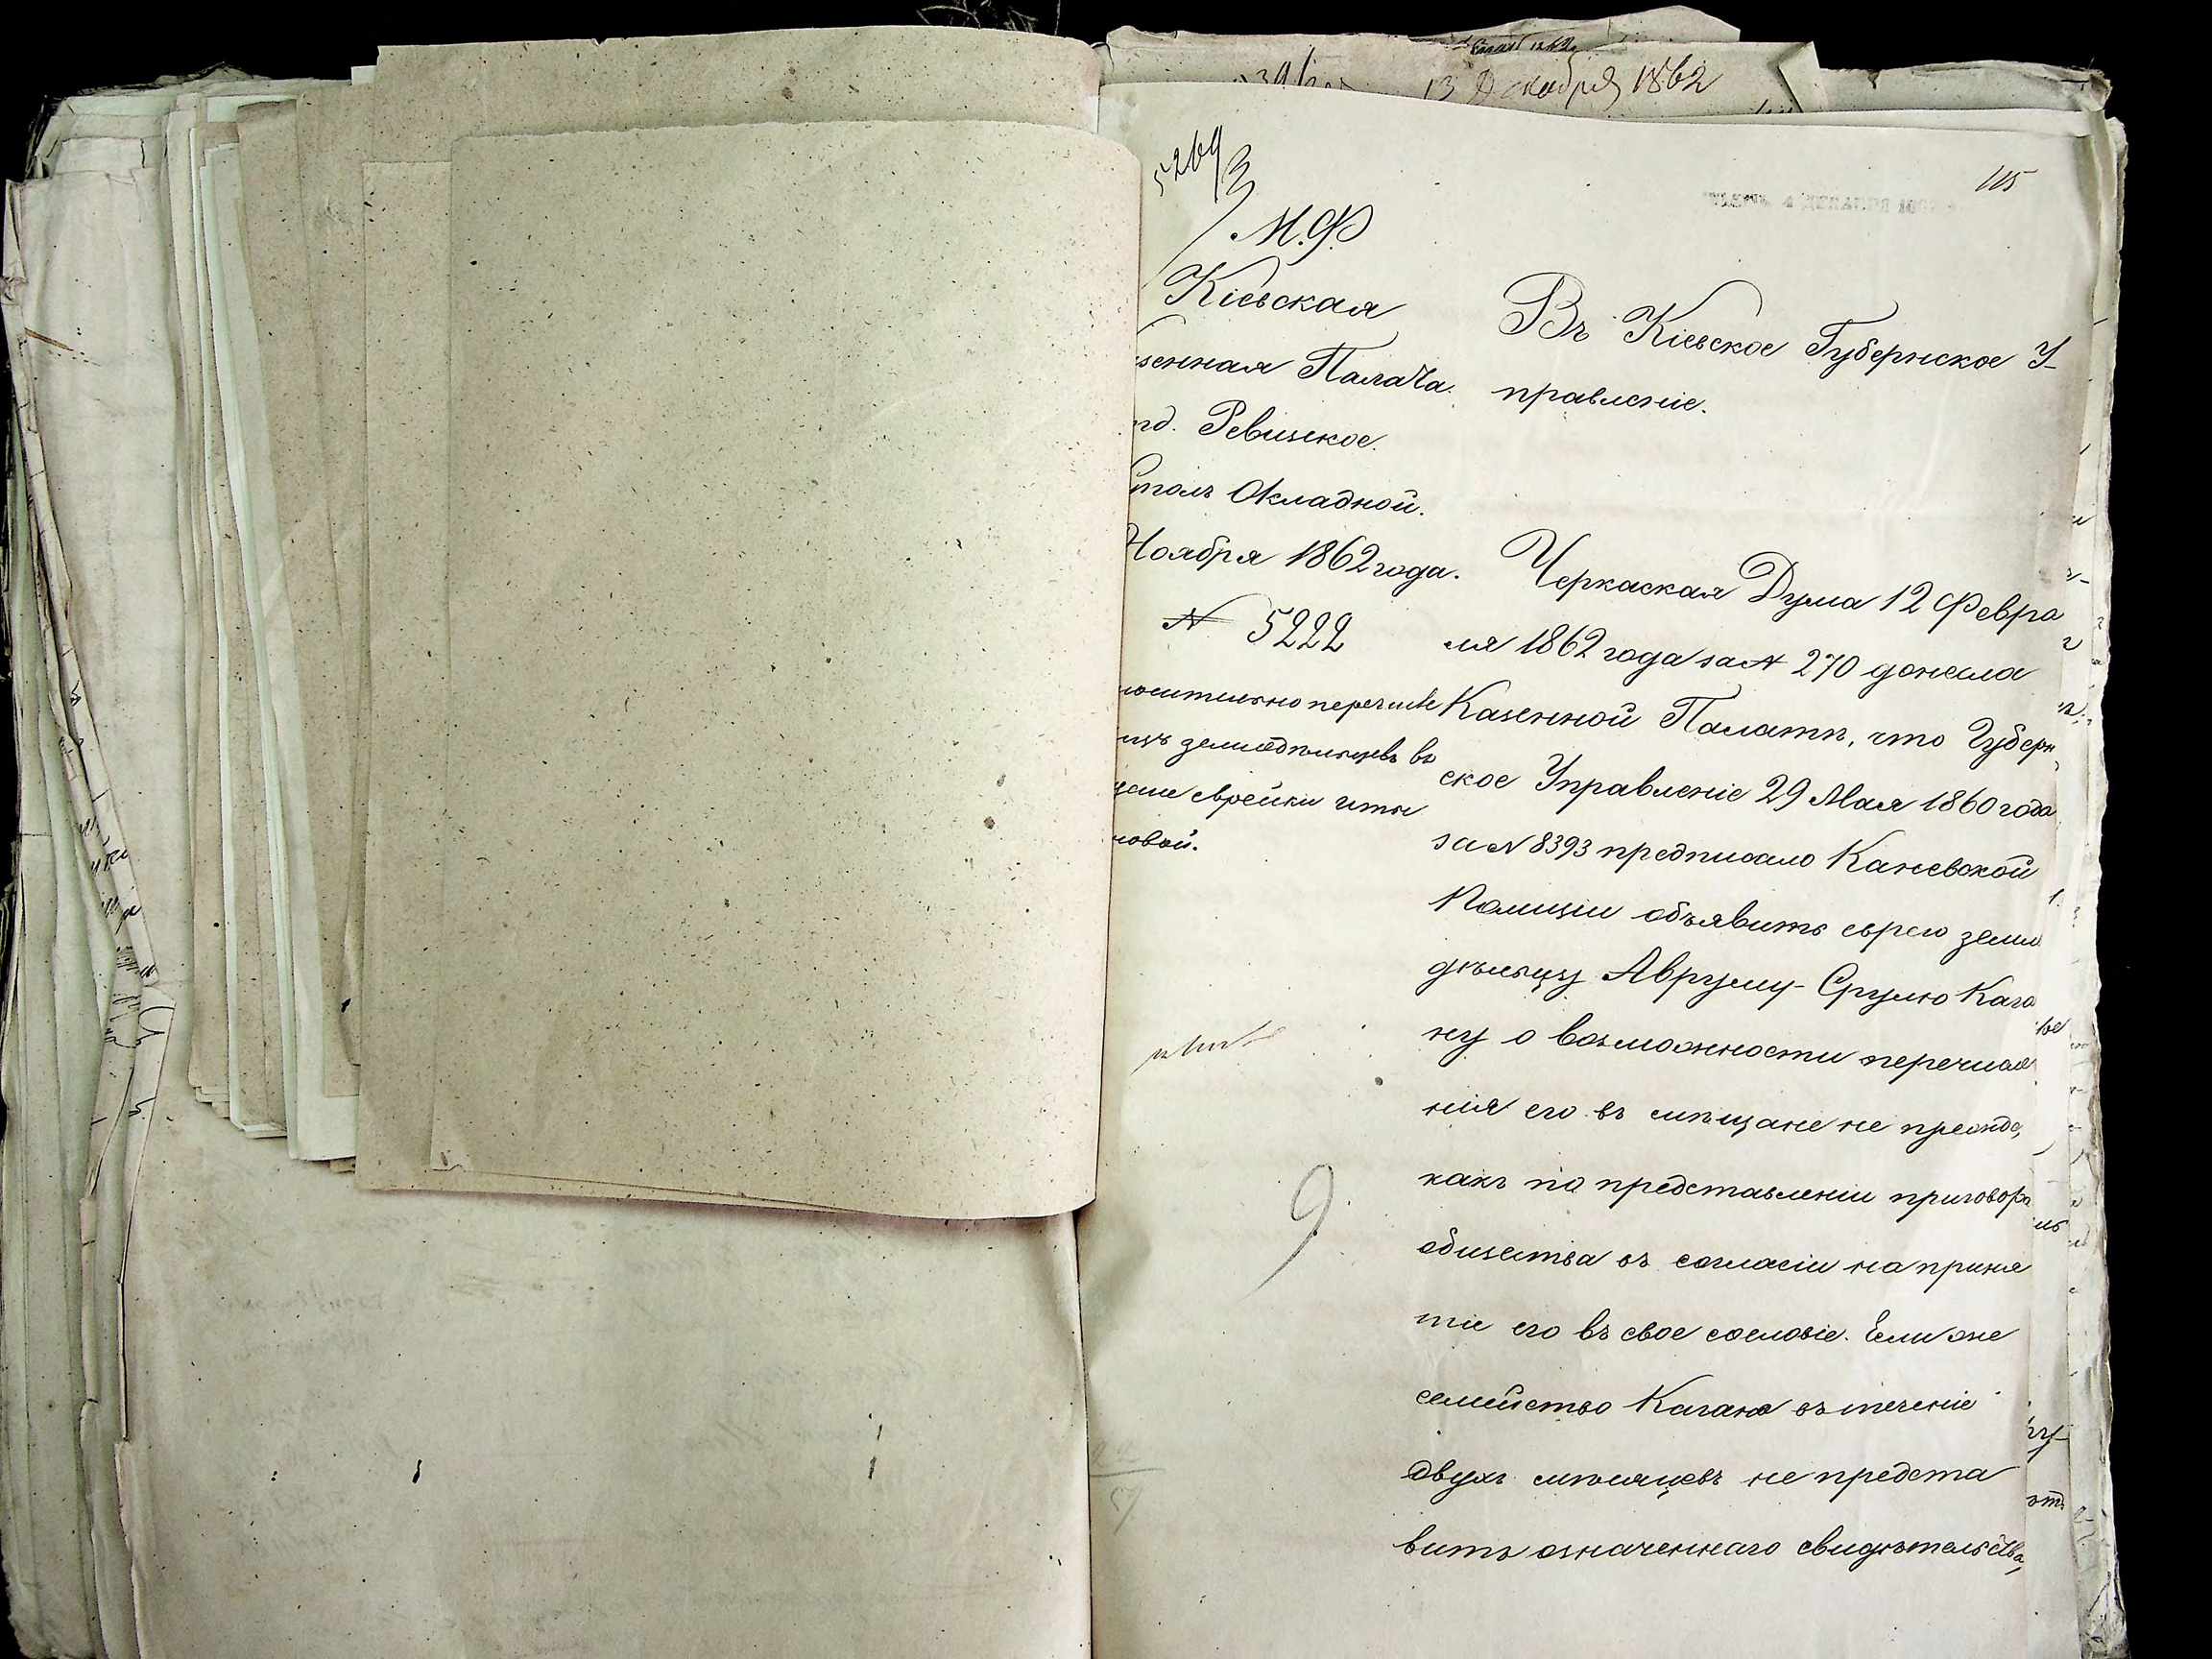 13 Декабря 1862
115
М.Ф.
Кіевская
зенная Палата.
тд. Ревизское.
Столъ Окладной.
Ноября 1862 года.
№ 5222
носительно перечисле
земледѣльцевъ въ
щане еврейки
новой.
Въ Кіевское Губернское У-
правленіе.
Черкаская Дума 12 Февра
ля 1862 года за № 270 донесла
Казенной Палатѣ, что Губерн
ское Управленіе 29 Мая 1860 года
за № 8393 предписало Каневской
Полиціи объявить еврею земле
дѣльцу Аврумъ-Срулю Кага
ну о возможности перечисле
нія его въ мѣщане не прежде,
какъ по представленіи приговора
общества въ согласіи на приня
тіе его въ свое сословіе. Если же
семейство Кагана въ теченіе
двухъ мѣсяцевъ не предста
витъ означеннаго свидѣтельства,
9